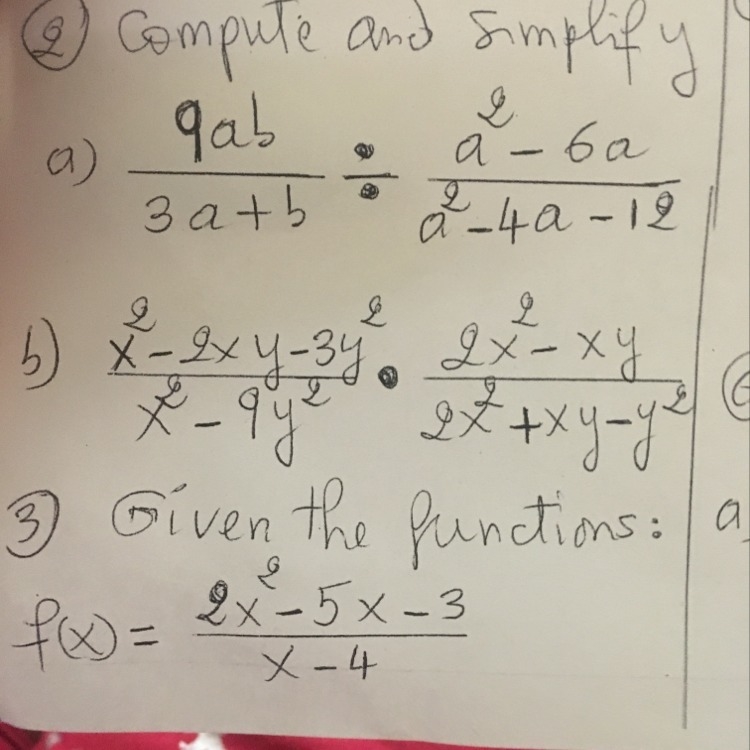 ② Compute and Simplify
a) 9ab / 3a+b ÷ a² - 6a / a² - 4a - 12
b) x² - 2xy - 3y² / x² - 9y² • 2x² - xy / 2x² + xy - y²
③ Given the functions:
f(x) = 2x² - 5x - 3 / x - 4
a